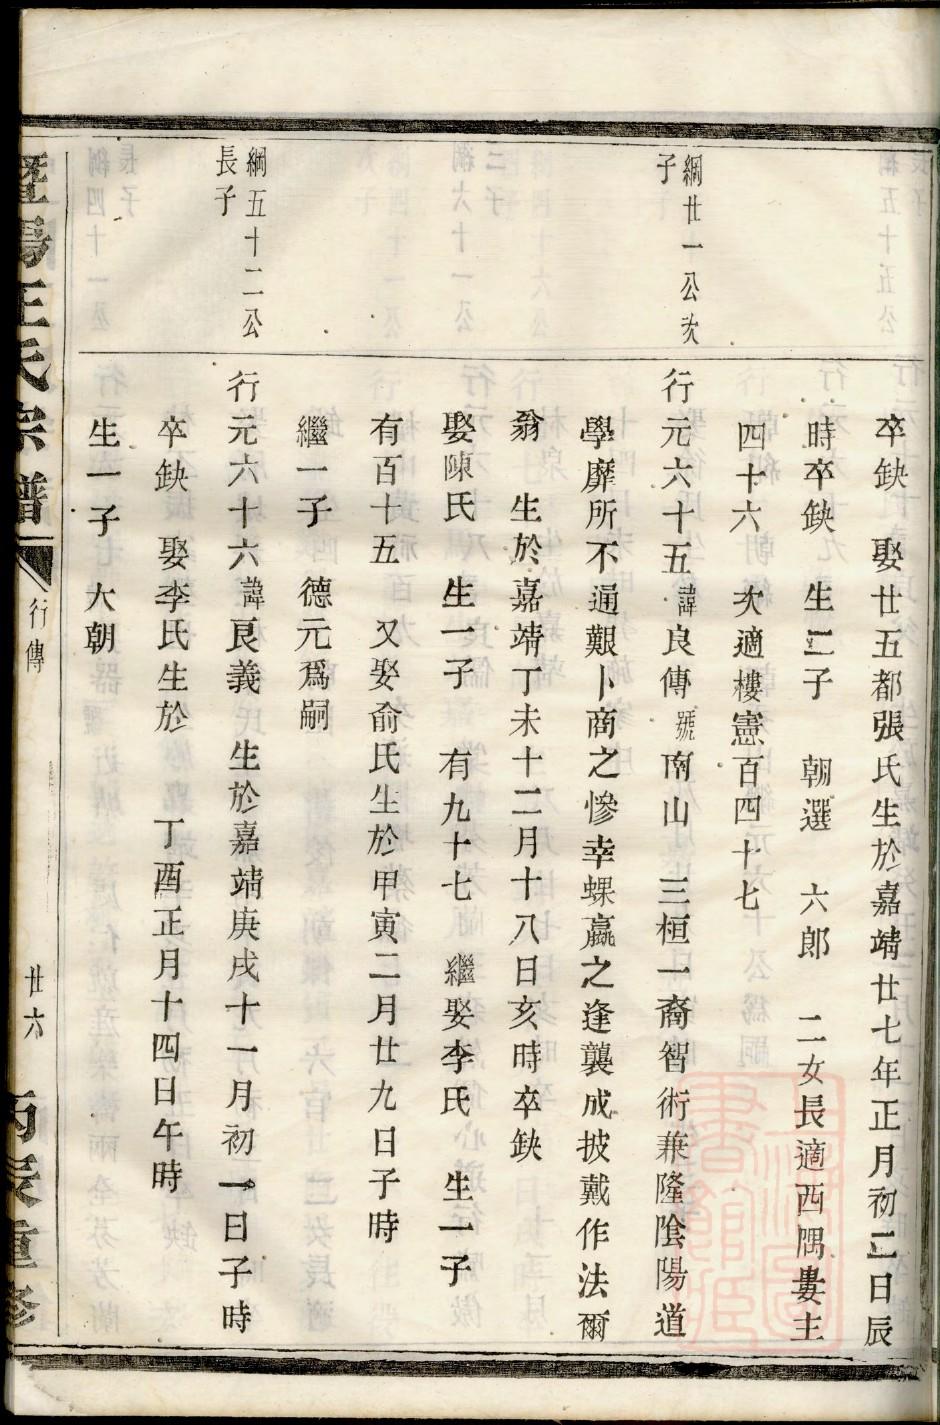 卒缺　娶廿五都張氏生於嘉靖廿七年正月初二日辰
時卒缺　生二子　朝選　六郎　二女長適西隅婁主
四十六次適樓憲百四十七
綱廿一公次
子
行元六十五諱良傳號南山三桓一裔智術兼隆陰陽道
學靡所不通艱卜商之慘幸蜾蠃之逢襲成披戴作法爾
翁　生於嘉靖丁未十二月十八日亥時卒缺
娶陳氏　生一子　有九十七　繼娶李氏　生一子
有百十五　又娶俞氏生於甲寅二月廿九日子時
繼一子　德元爲嗣
綱五十二公
長子
行元六十六諱良義　生於嘉靖庚戌十一月初一日子時
卒缺　娶李氏生於　丁酉正月十四日午時
生一子　大朝
暨陽王氏宗譜
行傳
廿六
丙辰重修